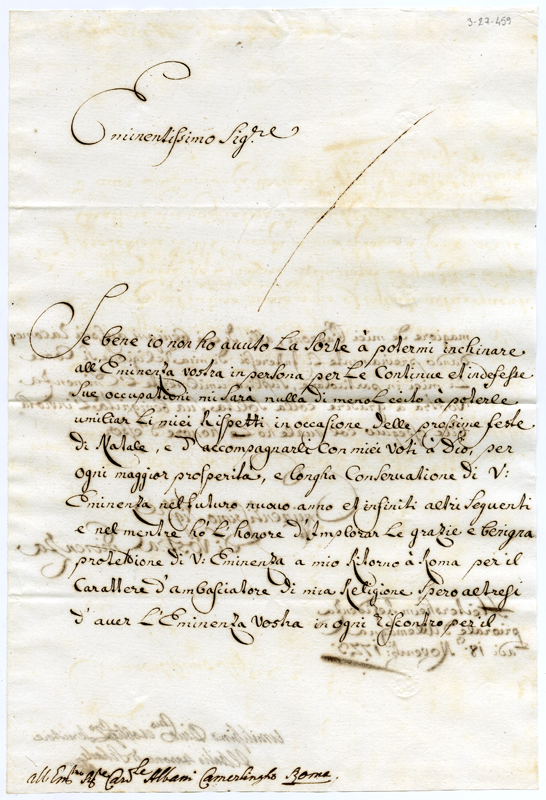 3-27-459
Eminentissimo Sig.re
Se bene io non ho avuto La Sorte à potermi inchinare
all'Eminenza vostra in persona per Le Continue et indefesse
Sue occupationi mi sarà nulla di meno Lecito à poterle
umiliar Li miei Rispetti in occasione delle prossime feste
di Natale, e d'accompagnarli Con miei voti à Dio, per
ogni maggior prosperità, e longha Conservatione di V:
Eminenza nel futuro nuovo anno et infiniti altri sequenti
e nel mentre hò L'honore d'Implorar Le grazie e benigna
protettione di V: Eminenza a mio Ritorno à Roma per il
Carattere d'ambasciatore di mia Religione Spero altresi
d'aver L'Eminenza Vostra in ogni riscontro per il
all Em.mo Card.le Albani Camerlingho Roma.